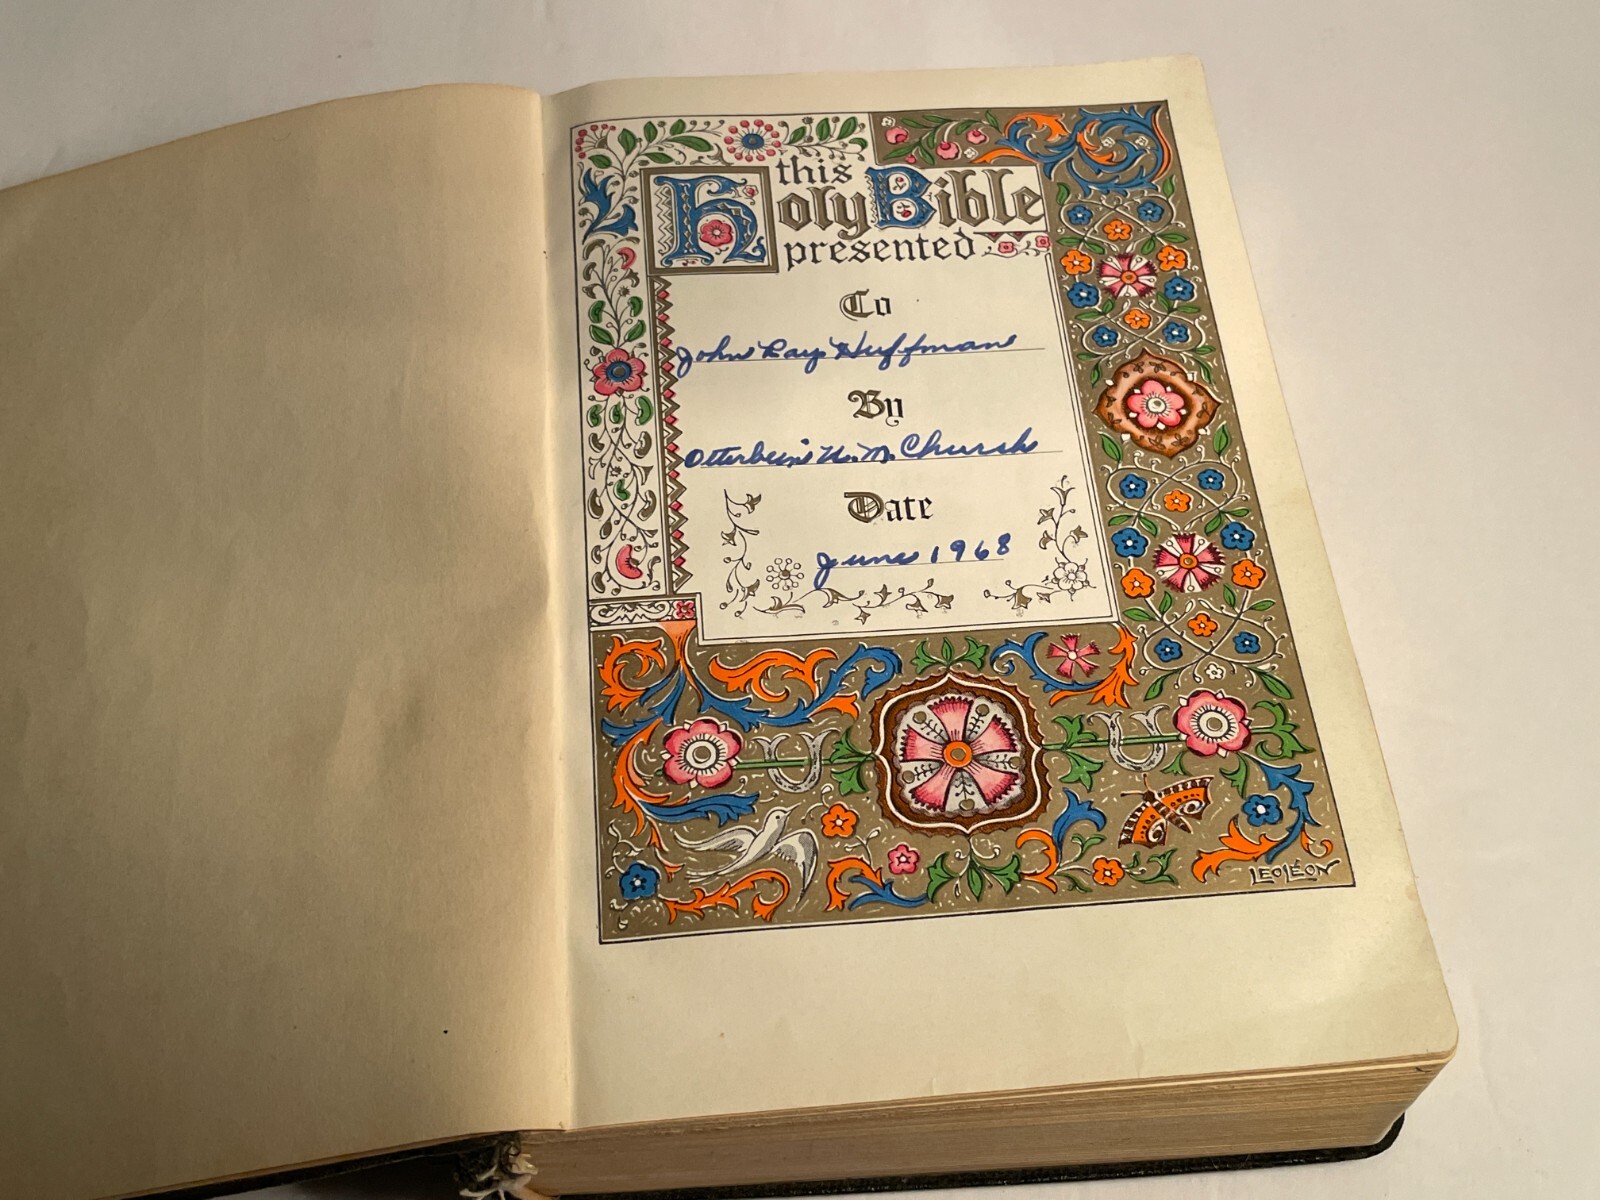 this
Holy Bible
presented
To
John Ray Huffman
By
Otterbein U. M. Church
Date
June 1968
LEO LÉON